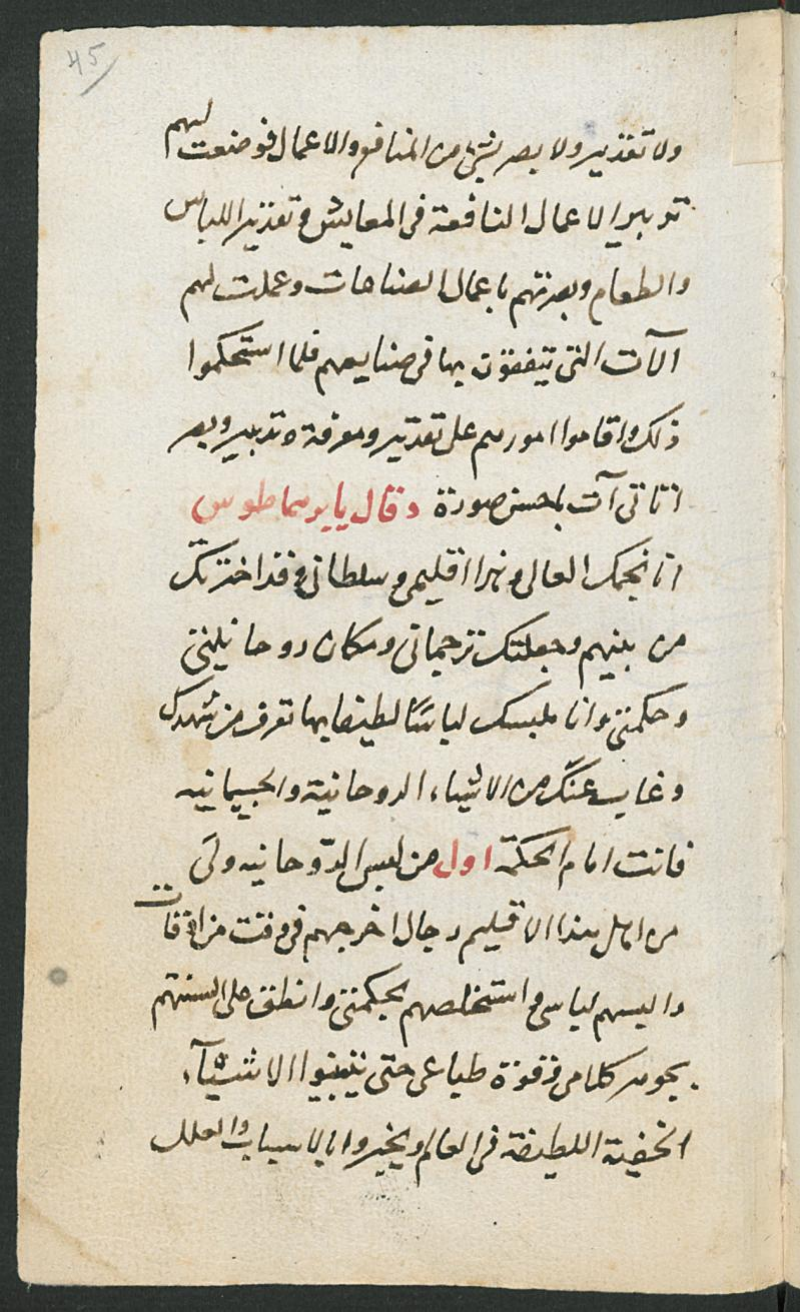 45
ولا تقدير ولا بصر بشئ من المنافع والاعمال فوضعت لهم
تدبير الاعمال النافعة فى المعايش وتقدير اللباس
والطعام وبصرتهم باعمال الصناعات وعملت لهم
الآت التى يتفقون بها فى صنايعهم فلما استحكموا
ذلك واقاموا امورهم على تقدير ومعرفة وتدبير وبصر
اتاتى آت باحسن صورة وقال يا
انا نجمك العالى وهذا اقليمى وسلطانى وقد اخترتك
من بينهم وجعلتك ترجمانى ومكان روحانيتى
وحكمتى وانا ملبسك لباسًا لطيفا بها تعرف من شهدك
وغايب عنك من الاشياء الروحانية والجسمانيه
فانت امام الحكمة اول من لبس الروحانيه ولى
من اهل هذا الاقليم رجال اخرجهم فى وقت من اوقات
والبسهم لباسى واستخلصهم لحكمتى وانطق على السنتهم
بجوهر كلامى وقوة طباعى حتى يتبينوا الاشيآء
الخفية اللطيفة فى العالم ويخبروا بالاسباب والعلل